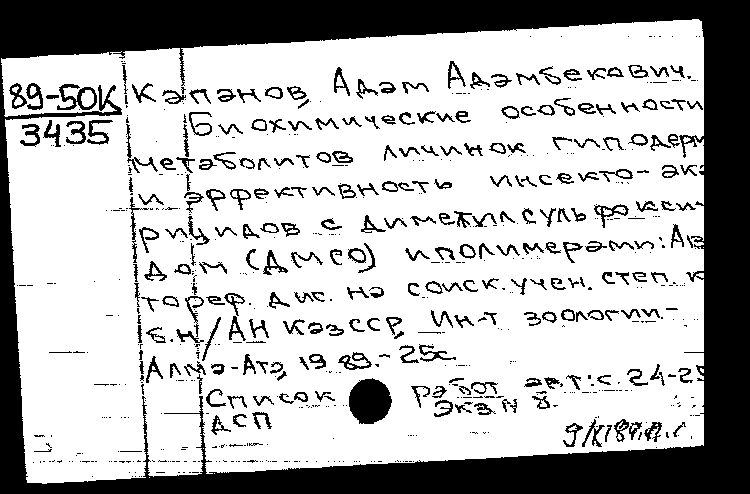 89-50К
3435
Капанов, Адам Адамбекович.
Биохимические особенности
метаболитов личинок гиподерм
и эффективность инсекто-ака
рицидов с диметилсульфокси-
дом (ДМСО) и полимерами: Ав
тореф. дис. на соиск. учен. степ. к
б.н. / АН КазССР, Ин-т зоологии.-
Алма-Ата, 1989.- 25с.
Список работ авт: с. 24-25
ДСП Экз N 8.